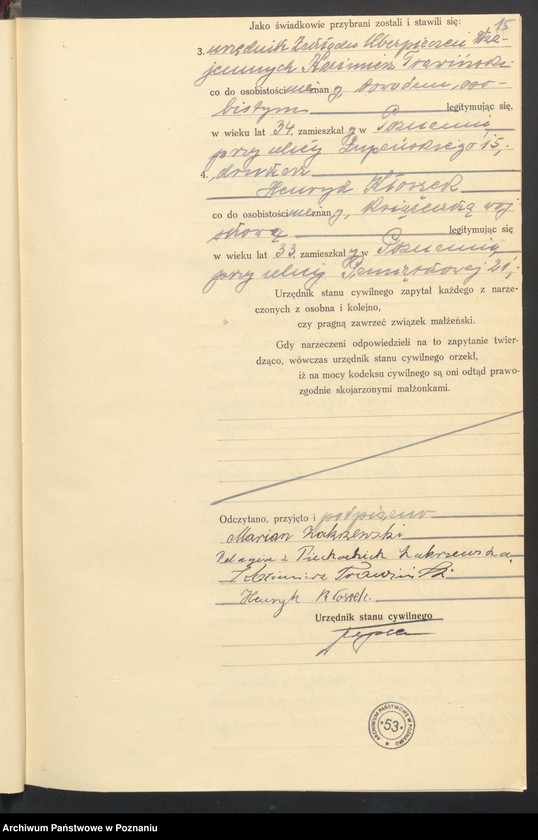 15
Jako świadkowie przybrani zostali i stawili się:
3. urzędnik Zakładu Ubezpieczeń Wza-
jemnych Kazimierz Trawiński
co do osobistości nieznany, dowodem oso-
bistym legitymując się,
w wieku lat 34, zamieszkały w Poznaniu,
przy ulicy Łupeńskiego 15,
4.
Henryk
co do osobistości nieznany, książeczką woj
skową legitymując się
w wieku lat 33, zamieszkały w Poznaniu,
przy ulicy 21,
Urzędnik stanu cywilnego zapytał każdego z narze-
czonych z osobna i kolejno,
czy pragną zawrzeć związek małżeński.
Gdy narzeczeni odpowiedzieli na to zapytanie twier-
dząco, wówczas urzędnik stanu cywilnego orzekł,
iż na mocy kodeksu cywilnego są oni odtąd prawo-
zgodnie skojarzonymi małżonkami.
Odczytano, przyjęto i podpisano
Marian Zakrzewski
Pelagia z Piechockich Zakrzewska
Kazimierz Trawiński
Henryk
Urzędnik stanu cywilnego
ARCHIWUM PAŃSTWOWE W POZNANIU
53
Archiwum Państwowe w Poznaniu